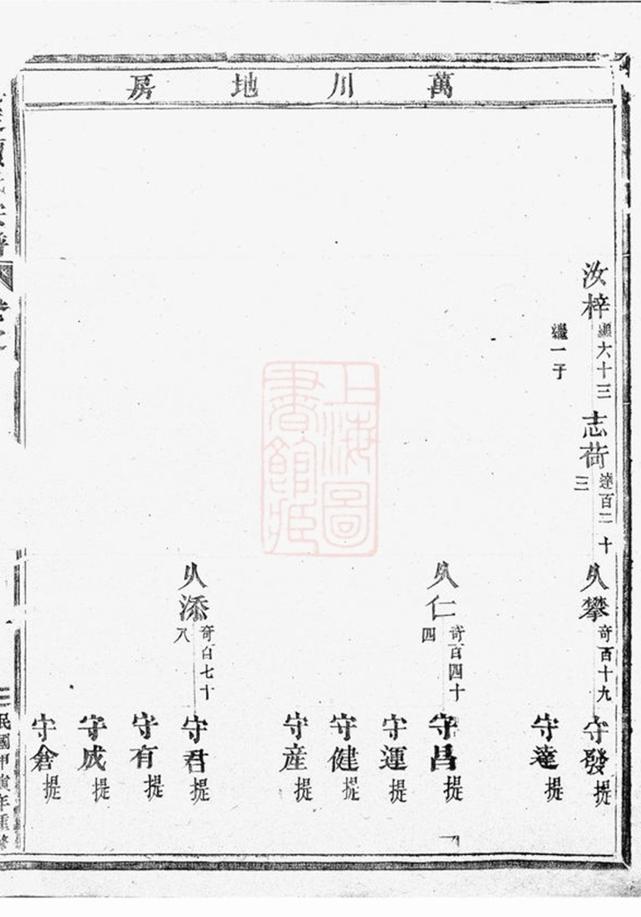 萬川地房
汝梓
六十三
繼一子
志荷
達百二十
三
久攀
奇百十九
守發提
守達提
久仁
奇百四十
四
守昌提
守運提
守健提
守産提
久添
奇百七十
八
守君提
守有提
守成提
守倉提
民國甲寅年重修
上海圖書館藏